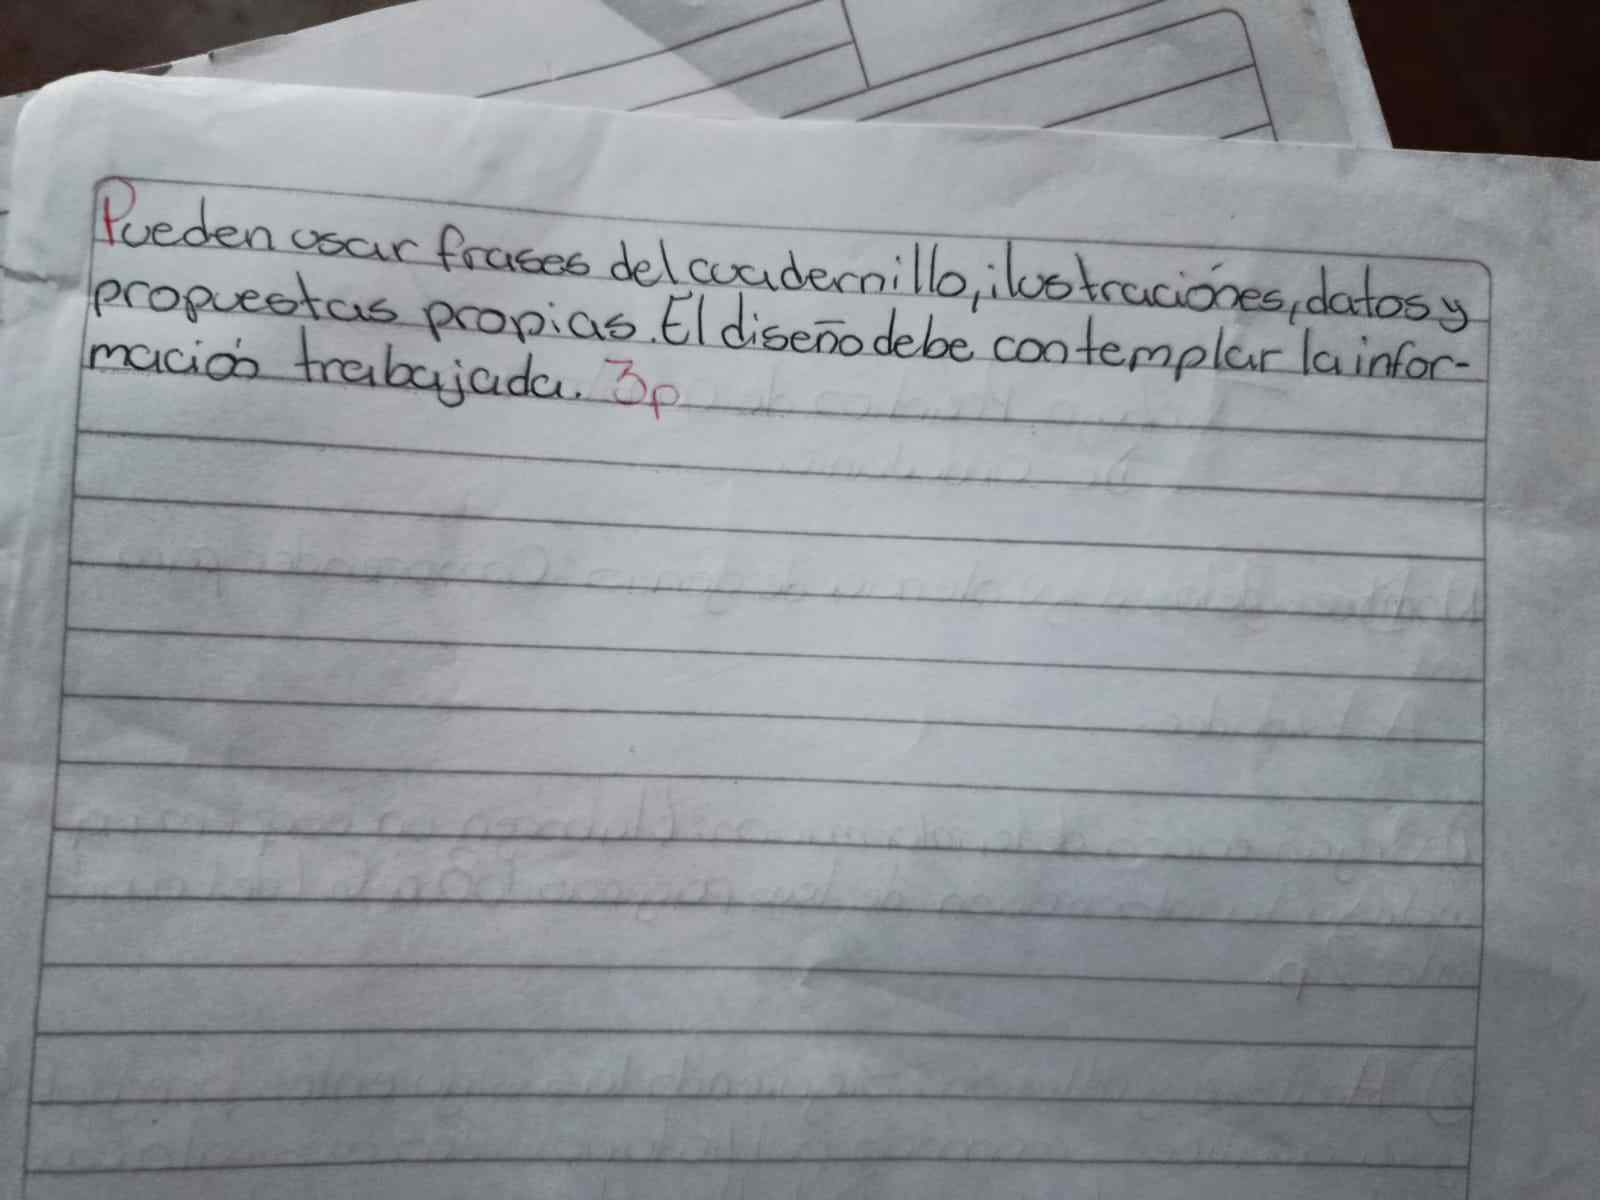 Pueden usar frases del cuadernillo, ilustraciónes, datos y
propuestas propias. El diseño debe contemplar la infor-
mación trabajada. 3p